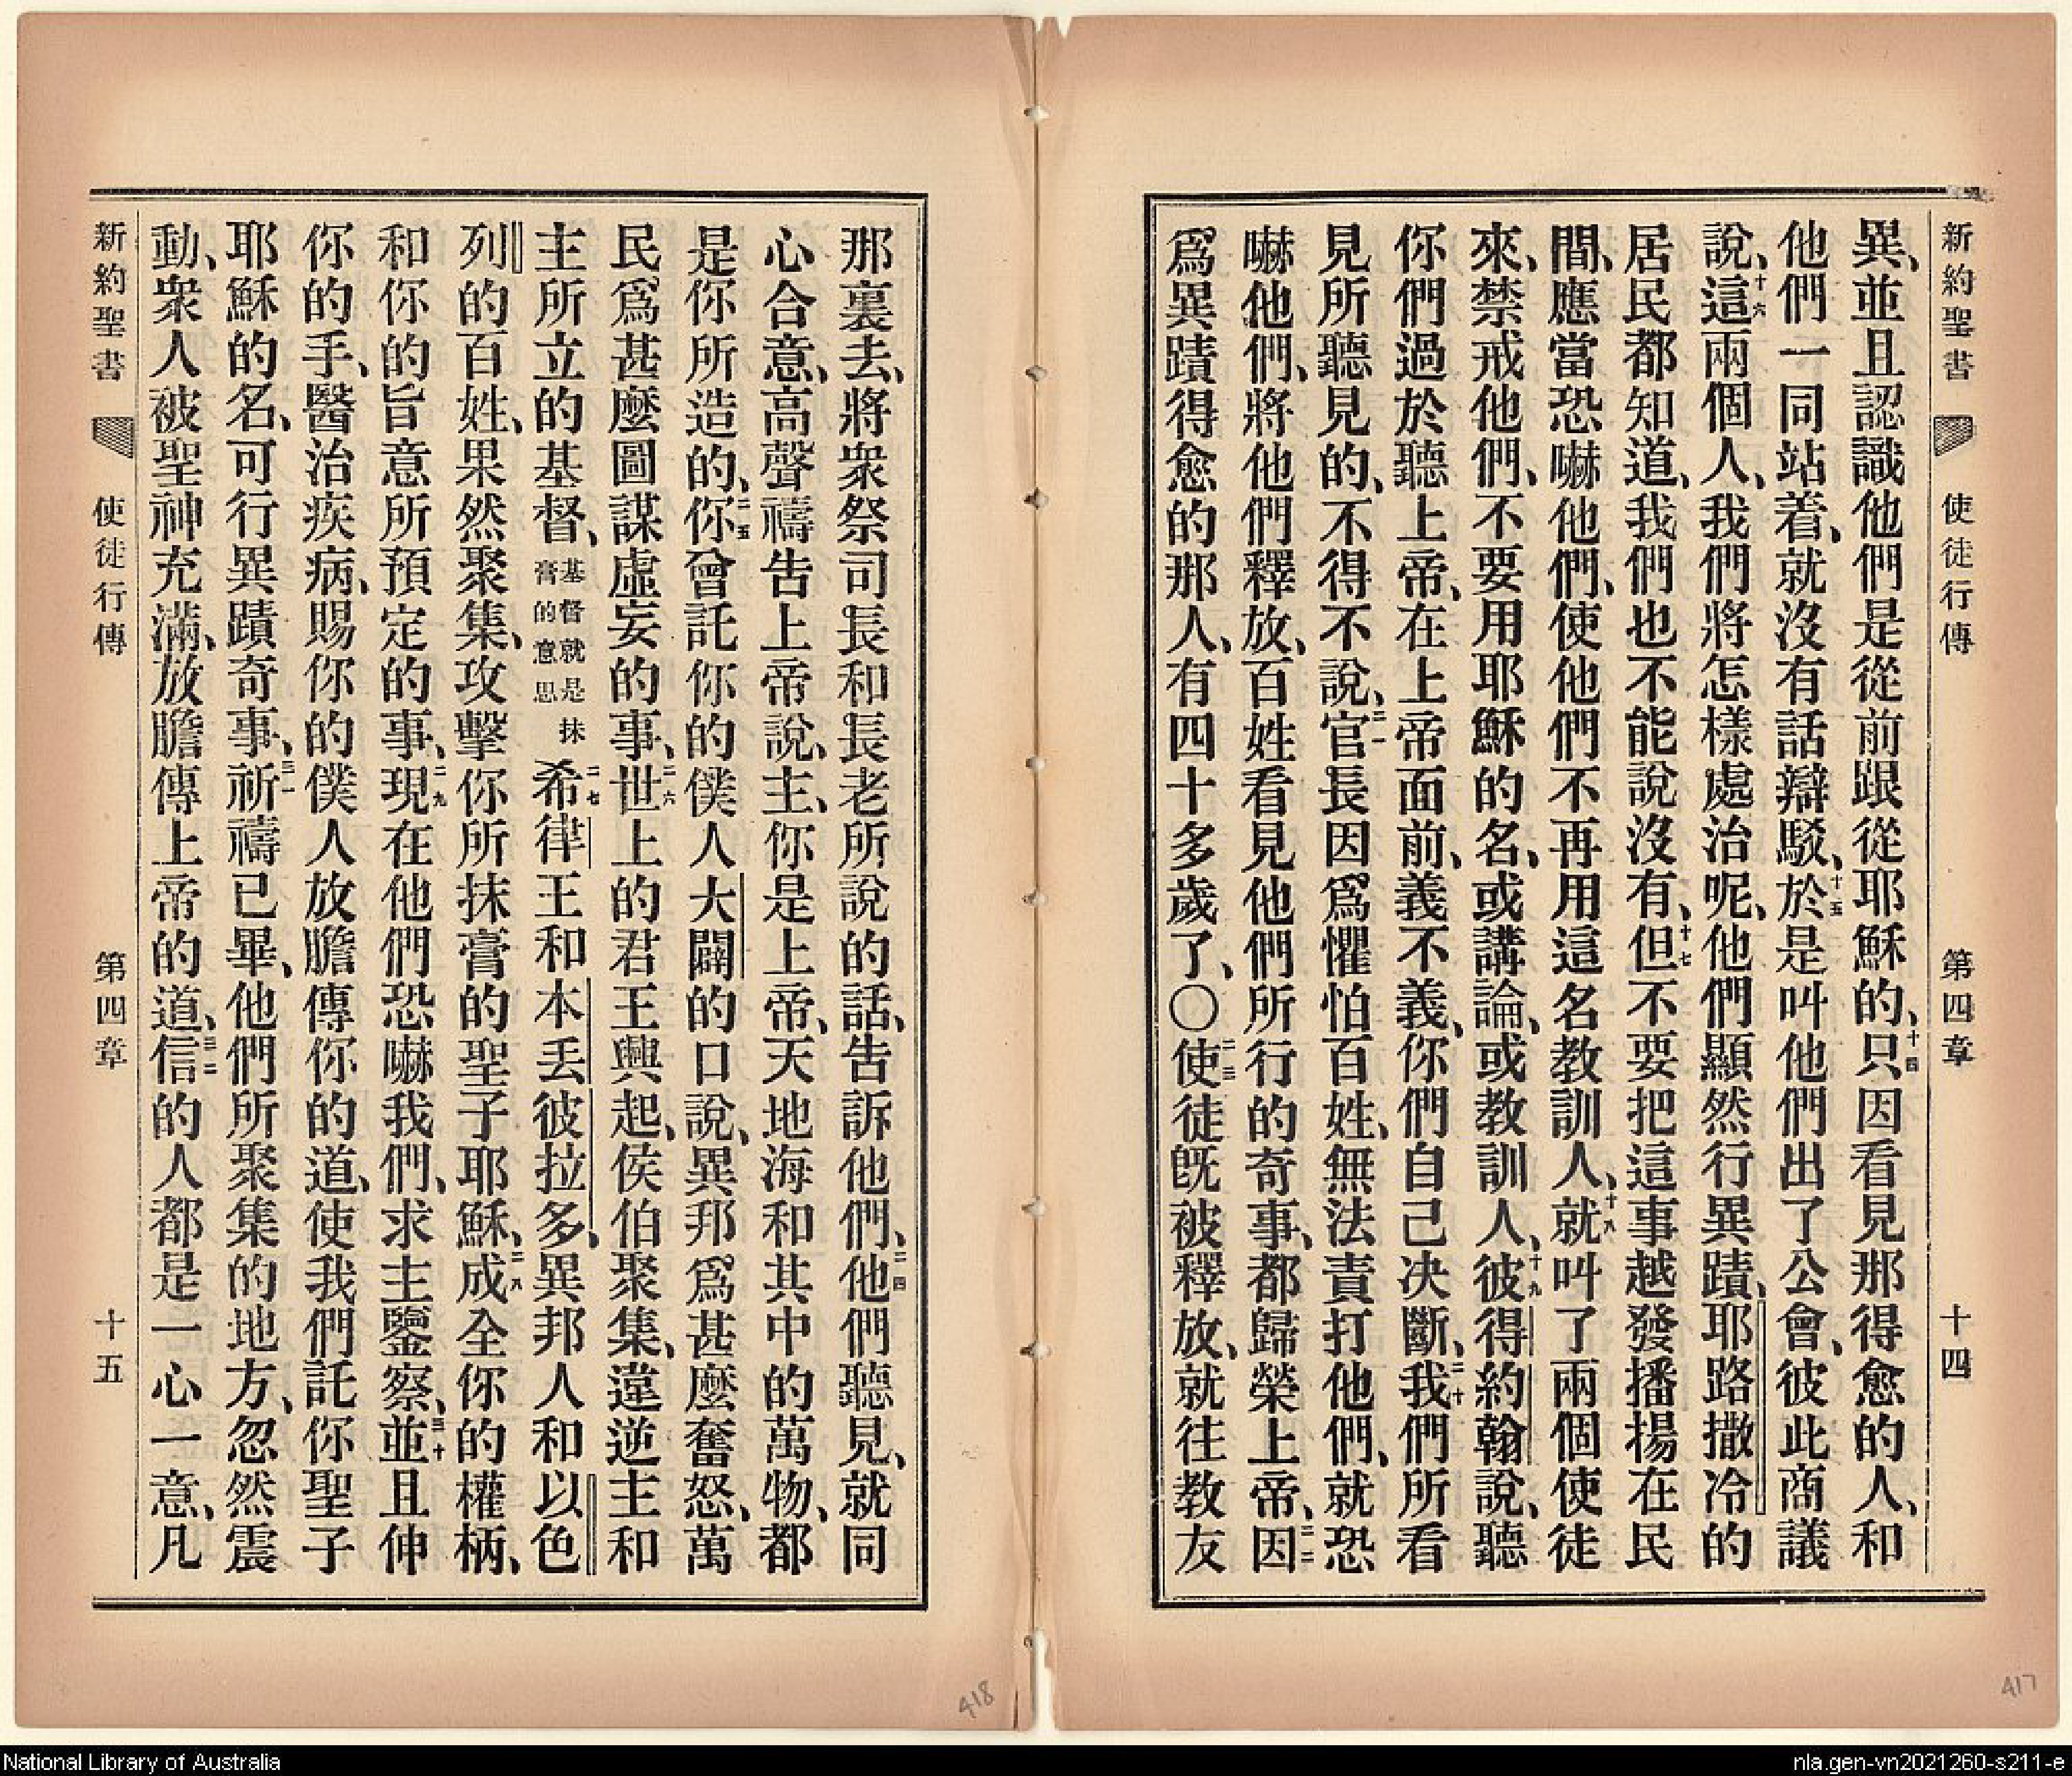 新約聖書 使徒行傳 第四章 十四
異、並且認識他們是從前跟從耶穌的、十四只因看見那得愈的人、和
他們一同站着、就沒有話辯駁、十五於是叫他們出了公會、彼此商議
說、十六這兩個人、我們將怎樣處治呢、他們顯然行異蹟、耶路撒冷的
居民都知道、我們也不能說沒有、十七但不要把這事越發播揚在民
間、應當恐嚇他們、使他們不再用這名教訓人、十八就叫了兩個使徒
來、禁戒他們、不要用耶穌的名、或講論、或教訓人、十九彼得約翰說、聽
你們過於聽上帝、在上帝面前、義不義、你們自己決斷、二十我們所看
見所聽見的、不得不說、二一官長因爲懼怕百姓、無法責打他們、就恐
嚇他們、將他們釋放、百姓看見他們所行的奇事、都歸榮上帝、二二因
爲異蹟得愈的那人、有四十多歲了、〇二三使徒旣被釋放、就往教友
那裏去、將衆祭司長和長老所說的話、告訴他們、二四他們聽見、就同
心合意、高聲禱告上帝說、主、你是上帝、天地海和其中的萬物、都
是你所造的、二五你曾託你的僕人大闢的口說、異邦爲甚麼奮怒、萬
民爲甚麼圖謀虛妄的事、二六世上的君王興起、侯伯聚集、違逆主和
主所立的基督、基督就是抹膏的意思二七希律王和本丢彼拉多、異邦人和以色
列的百姓、果然聚集、攻擊你所抹膏的聖子耶穌、二八成全你的權柄、
和你的旨意所預定的事、二九現在他們恐嚇我們、求主鑒察、三十並且伸
你的手、醫治疾病、賜你的僕人放膽傳你的道、使我們託你聖子
耶穌的名、可行異蹟奇事、三一祈禱已畢、他們所聚集的地方、忽然震
動、衆人被聖神充滿、放膽傳上帝的道、三二信的人都是一心一意、凡
新約聖書 使徒行傳 第四章 十五
418
417
National Library of Australia
nla.gen-vn2021260-s211-e